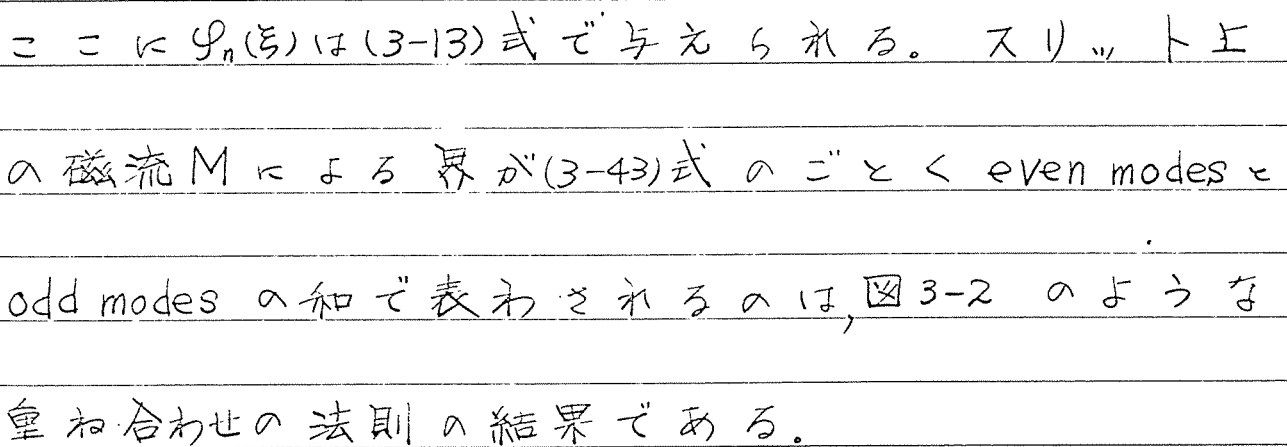 ここに φn(ξ)は(3-13)式で与えられる。スリット上
の磁流Mによる界が(3-43)式のごとく even modesと
odd modes の和で表わされるのは,図3-2 のような
重ね合わせの法則の結果である。